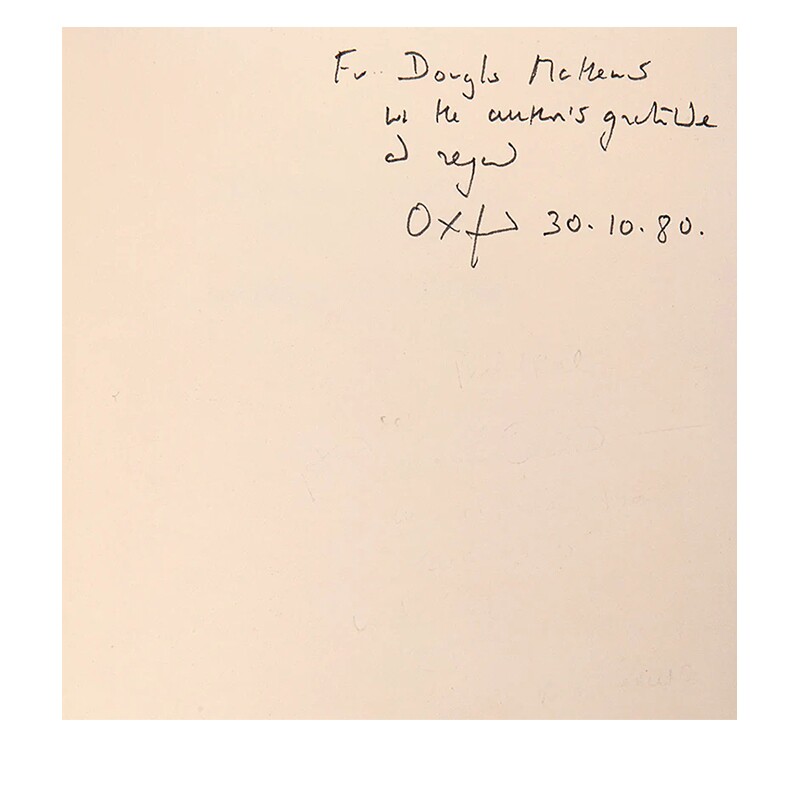 For Douglas Matthews
with the author's gratitude
and regard
Oxford 30.10.80.